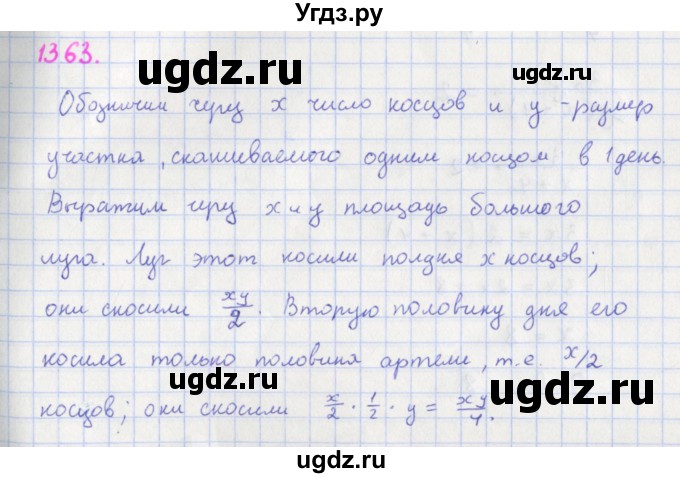 Угдз.ру
1363.
ugdz.ru
ugdz.ru
Обозначим через x число косцов и y - размер
участка, скашиваемого одним косцом в 1 день.
Выразим через x и y площадь большого
луга. Луг этот косили полдня x косцов;
они скосили xy/2. Вторую половину дня его
косила только половина артели, т.е. x/2
косцов; они скосили x/2 · 1/2 · y = xy/4.
ugdz.ru
ugdz.ru
ugdz.ru
ugdz.ru
ugdz.ru
ugdz.ru